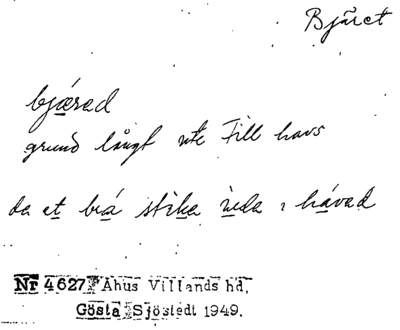 Bjäret
bjæred
grund långt ute Till havs
da et brá stika ùda i hávad
Nr 4627 Åhus Villands hd,
Gösta Sjöstedt 1949.